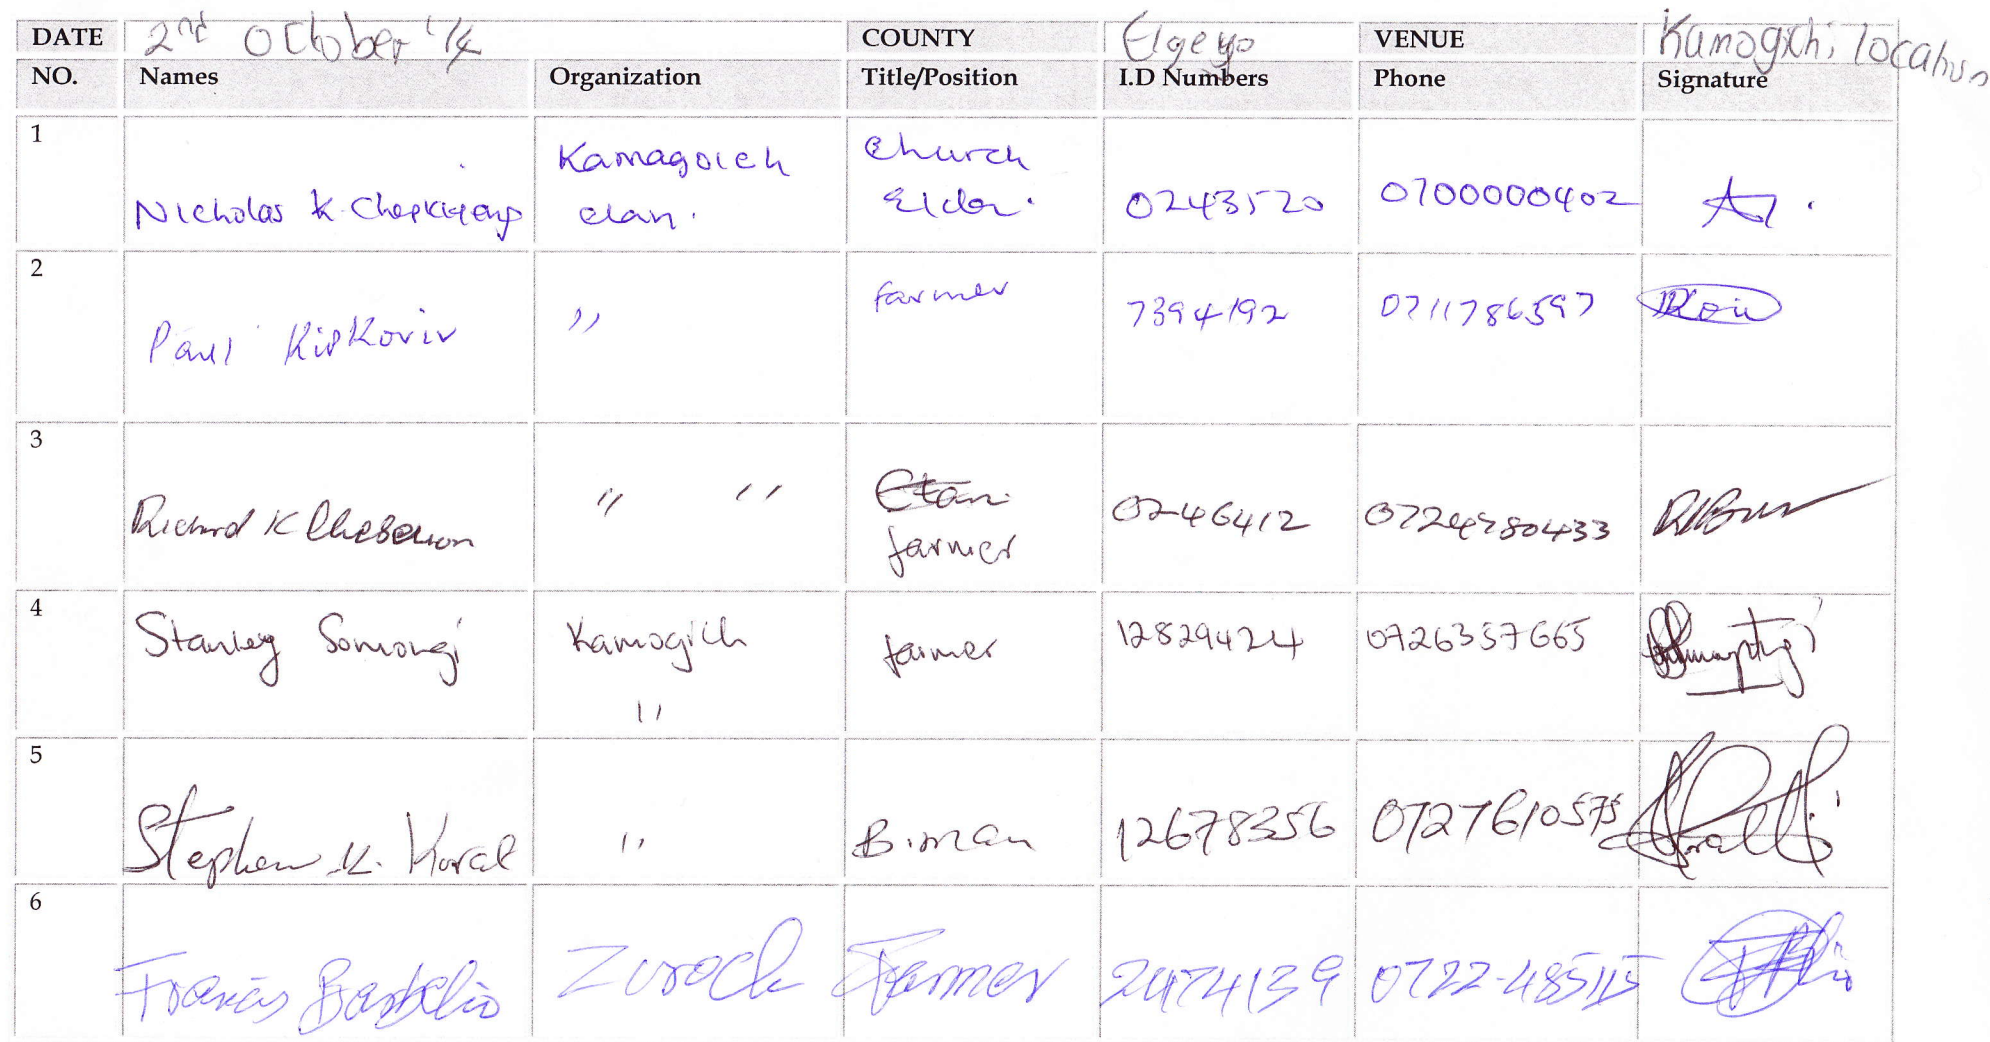 DATE 2nd October '14 COUNTY Elgeyo VENUE Kamogich; location
NO. Names Organization Title/Position I.D Numbers Phone Signature
1 Nicholas K. Chepkieng Kamagoich clan. Church Elder. 0243520 0700000402
2 Paul Kipkorir " farmer 7394192 0711786597
3 Richard K Cheserion " " farmer 0246412 0724780433
4 Stanley Somongi Kamogich " farmer 12829424 0726357665
5 Stephen K. Koral " B.man 12678356 0727610575
6 Francis Zuroch Farmer 2474139 0722-485115